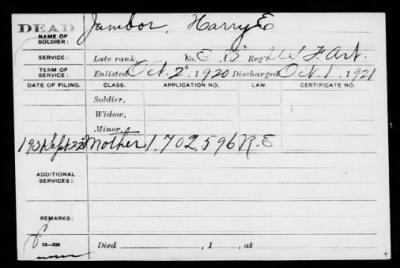 DEAD
NAME OF SOLDIER: Jambor, Harry E
SERVICE: Late rank Co. E, 15" Reg't F. Art.
TERM OF SERVICE: Enlisted Oct. 2", 1920 Discharged Oct. 1, 1921
DATE OF FILING. CLASS. APPLICATION NO. LAW. CERTIFICATE NO.
Soldier,
Widow,
Minor,
Mother 1,702,596 R.E
ADDITIONAL SERVICES:
REMARKS:
Died , 1 , at